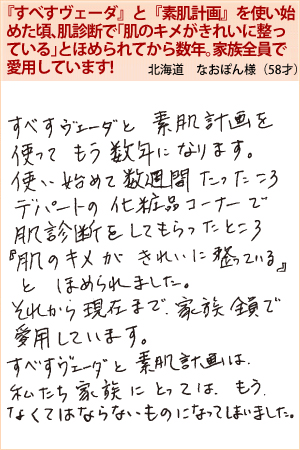 『すべすべヴェーダ』と『素肌計画』を使い始
めた頃、肌診断で「肌のキメがきれいに整っ
ている」とほめられてから数年。家族全員で
愛用しています!
北海道　なおぽん様（58才）
すべすべヴェーダと 素肌計画を
使って もう 数年に なります。
使い始めて 数週間 たったころ
デパートの 化粧品コーナーで
肌診断をしてもらったところ
『肌のキメが きれいに 整っている』
と ほめられました。
それから 現在まで、家族全員で
愛用しています。
すべすべヴェーダと 素肌計画は、
私たち 家族に とっては、もう、
なくてはならないものになってしまいました。